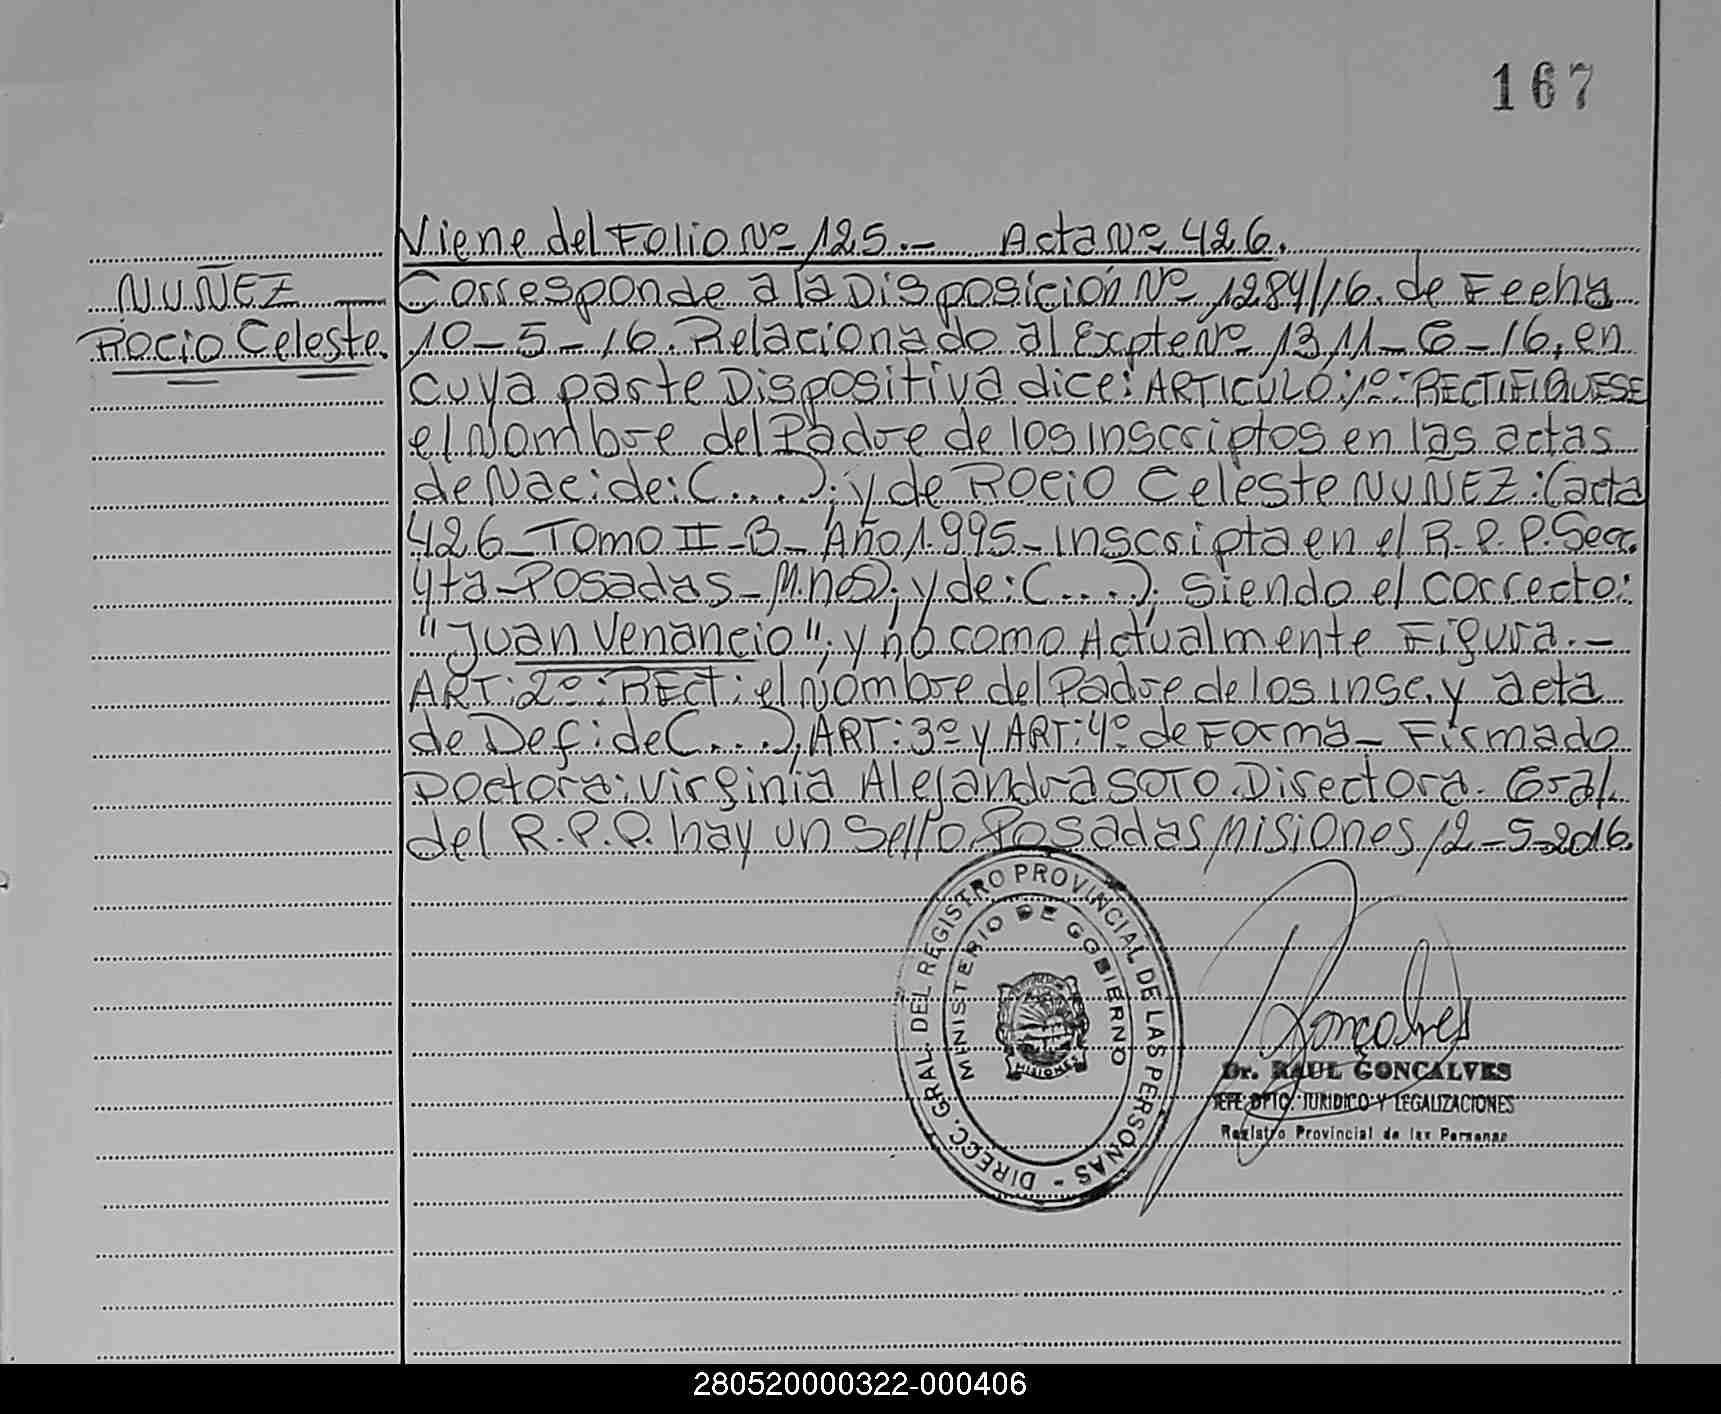 167
Viene del Folio Nº 125.- Acta Nº 426.
NUÑEZ
Rocio Celeste.
Corresponde a la Disposición Nº 1284/16. de Fecha
10-5-16. Relacionado al Expte Nº 1311-G-16, en
cuya parte Dispositiva dice: ARTICULO: 1º: RECTIFIQUESE
el Nombre del Padre de los inscriptos en las actas
de Nac: de: (....); y de Rocio Celeste NUÑEZ: (acta
426 - Tomo II-B - Año 1.995 - inscripta en el R.P.P. Secc.
4ta - Posadas - Mnes); y de: (....), siendo el correcto:
"Juan Venancio"; y no como Actualmente Figura.-
ART: 2º: RECT: el Nombre del Padre de los insc. y acta
de Def: de (....), ART: 3º y ART: 4º de Forma - Firmado
Doctora: Virginia Alejandra SOTO. Directora. Gral.
del R.P.P. hay un Sello Posadas Misiones 12-5-2016.
DIRECC. GRAL. DEL REGISTRO PROVINCIAL DE LAS PERSONAS -
MINISTERIO DE GOBIERNO
MISIONES
Goncalves
Dr. RAUL GONCALVES
JEFE DPTO. JURIDICO Y LEGALIZACIONES
Registro Provincial de las Personas
280520000322-000406